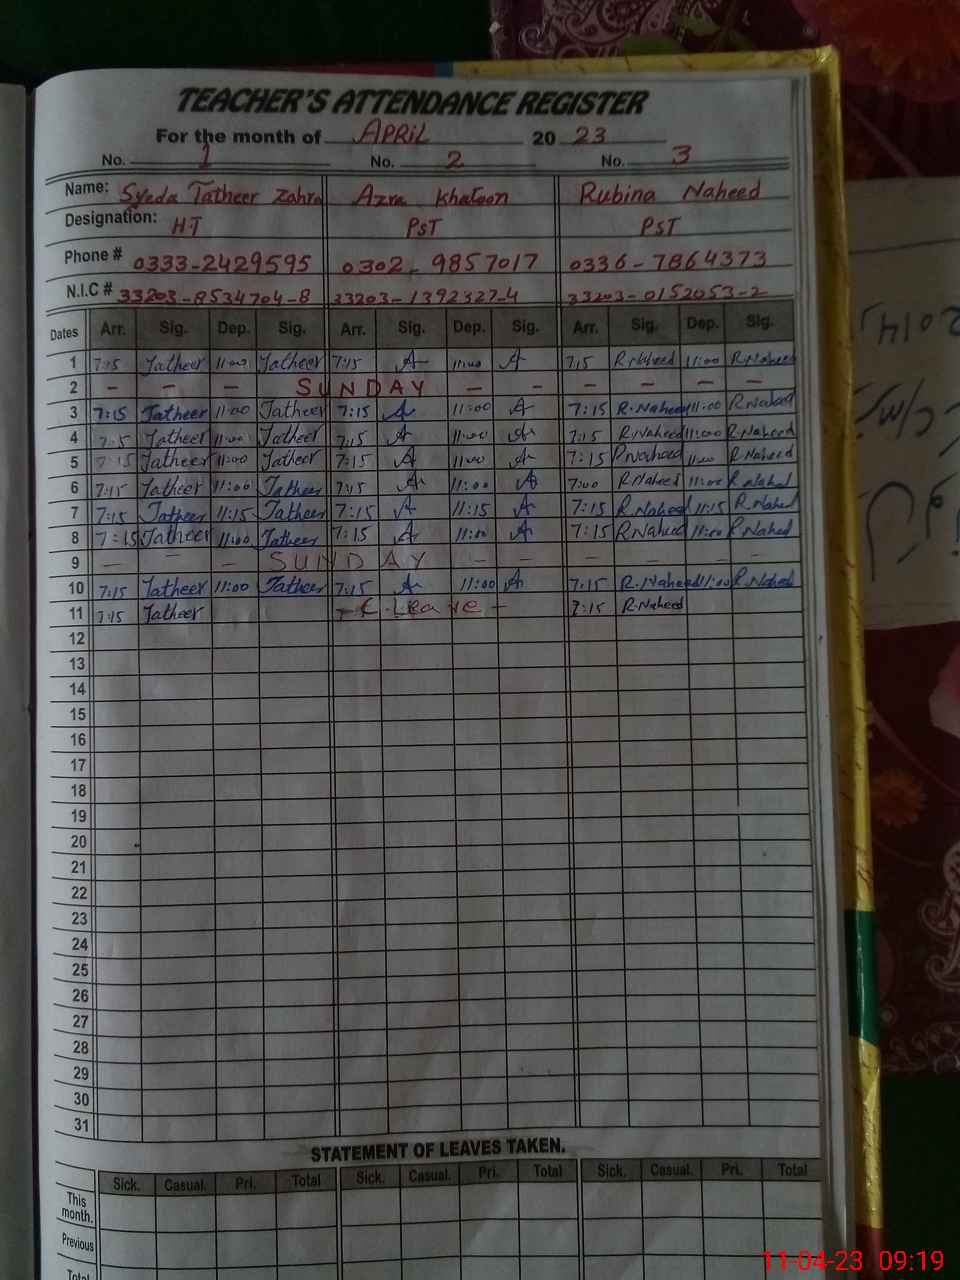 TEACHER'S ATTENDANCE REGISTER
For the month of APRIL 2023
No. 1 No. 2 No. 3
Name: Syeda Tatheer Zahra Azra Khatoon Rubina Naheed
Designation: H.T PST PST
Phone # 0333-2429595 0302-9857017 0336-7864373
N.I.C # 33203-8534704-8 33203-1392327-4 33203-0152053-2
Dates Arr. Sig. Dep. Sig. Arr. Sig. Dep. Sig. Arr. Sig. Dep. Sig.
1 7:15 Tatheer 11:00 Tatheer 7:15 A 11:00 A 7:15 R.Naheed 11:00 R.Naheed
2 - - - SUNDAY - - - - - -
3 7:15 Tatheer 11:00 Tatheer 7:15 A 11:00 A 7:15 R.Naheed 11:00 R.Naheed
4 7:15 Tatheer 11:00 Tatheer 7:15 A 11:00 A 7:15 R.Naheed 11:00 R.Naheed
5 7:15 Tatheer 11:00 Tatheer 7:15 A 11:00 A 7:15 R.Naheed 11:00 R.Naheed
6 7:15 Tatheer 11:00 Tatheer 7:15 A 11:00 A 7:00 R.Naheed 11:00 R.Naheed
7 7:15 Tatheer 11:15 Tatheer 7:15 A 11:15 A 7:15 R.Naheed 11:15 R.Naheed
8 7:15 Tatheer 11:00 Tatheer 7:15 A 11:00 A 7:15 R.Naheed 11:00 R.Naheed
9 - - - SUNDAY - - - - - -
10 7:15 Tatheer 11:00 Tatheer 7:15 A 11:00 A 7:15 R.Naheed 11:00 R.Naheed
11 7:15 Tatheer - C.Leave - 7:15 R.Naheed
12
13
14
15
16
17
18
19
20
21
22
23
24
25
26
27
28
29
30
31
STATEMENT OF LEAVES TAKEN.
Sick. Casual. Pri. Total Sick. Casual. Pri. Total Sick. Casual. Pri. Total
This month.
Previous
Total
2014
11-04-23 09:19